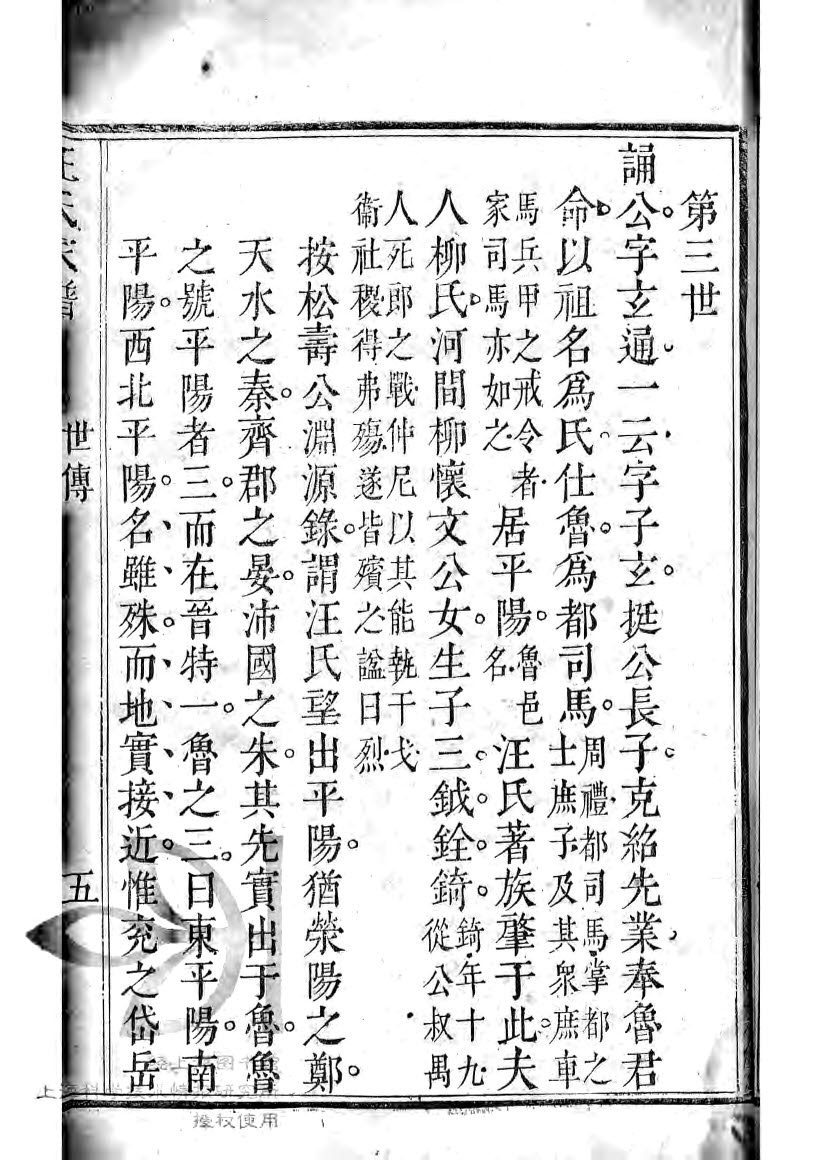 第三世
誦公字玄通一云字子玄挺公長子克紹先業奉魯君
命以祖名爲氏仕魯爲都司馬周禮都司馬掌都之士庶子及其衆庶車
馬兵甲之戒令者家司馬亦如之居平陽魯邑名汪氏著族肇于此夫
人柳氏河間柳懷文公女生子三鉞銓錡錡年十九從公叔禺
人死郎之戰仲尼以其能執干戈衛社稷得弗殤遂皆殯之諡曰烈
按松壽公淵源錄謂汪氏望出平陽猶滎陽之鄭
天水之秦齊郡之晏沛國之朱其先實出于魯魯
之號平陽者三而在晉特一魯之三曰東平陽南
平陽西北平陽名雖殊而地實接近惟兖之岱岳
汪氏家譜
世傳
五
授权使用